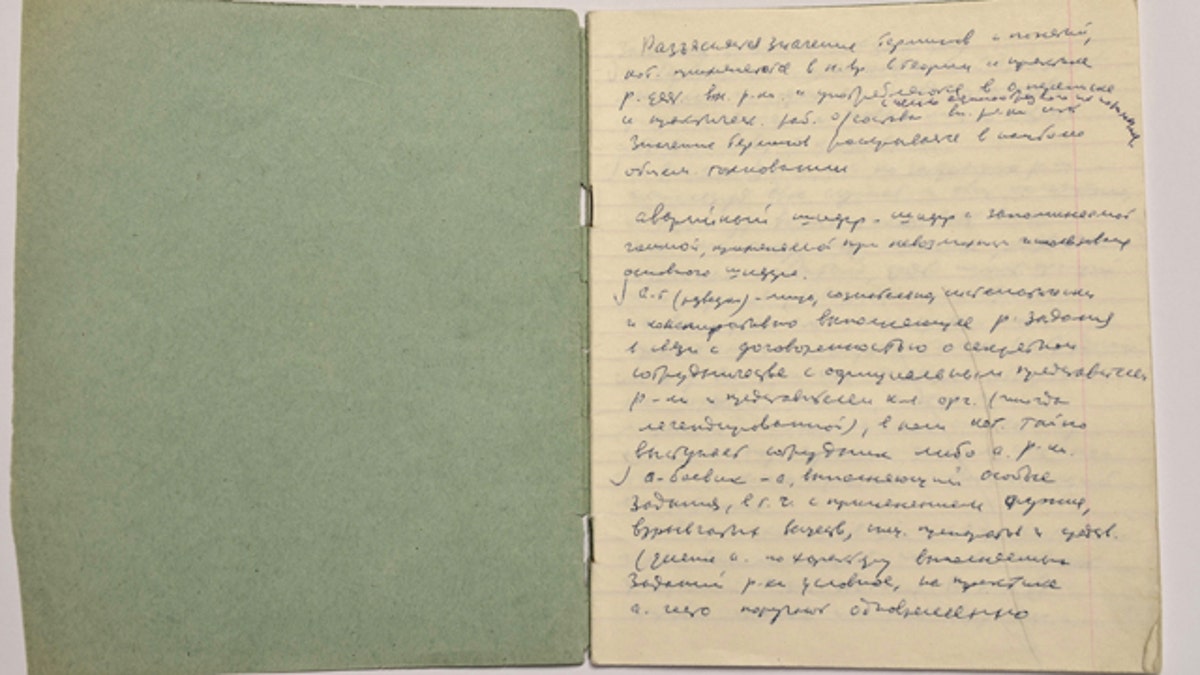 Разъясняется значение терминов и понятий,
кот. применяются в н. вр. в теории и практике
р. деят. вн. р-ки и употребляются в оп. переписке
и практическ. раб. о/состава вн. р-ки
Значение терминов раскрывается в наиболее
общем толковании
аварийный шифр - шифр с запоминаемой
гаммой, применяемой при невозможн. использования
основного шифра.
а-т (разведки) - лицо, сознательно, систематически
и конспиративно выполняющее р. задания
в связи с договоренностью о секретном
сотрудничестве с официальным представителем
р-ки и представителем к-л. орг. (иногда
легендированной), в кот. тайно
выступает сотрудник либо а. р-ки.
а-боевик - а, выполняющий особые
задания, в т. ч. с применением оружия,
взрывчатых веществ, спец. препаратов и средств.
(деление а. по характеру выполняемых
заданий р-ки условное, на практике
а. часто поручают одновременно